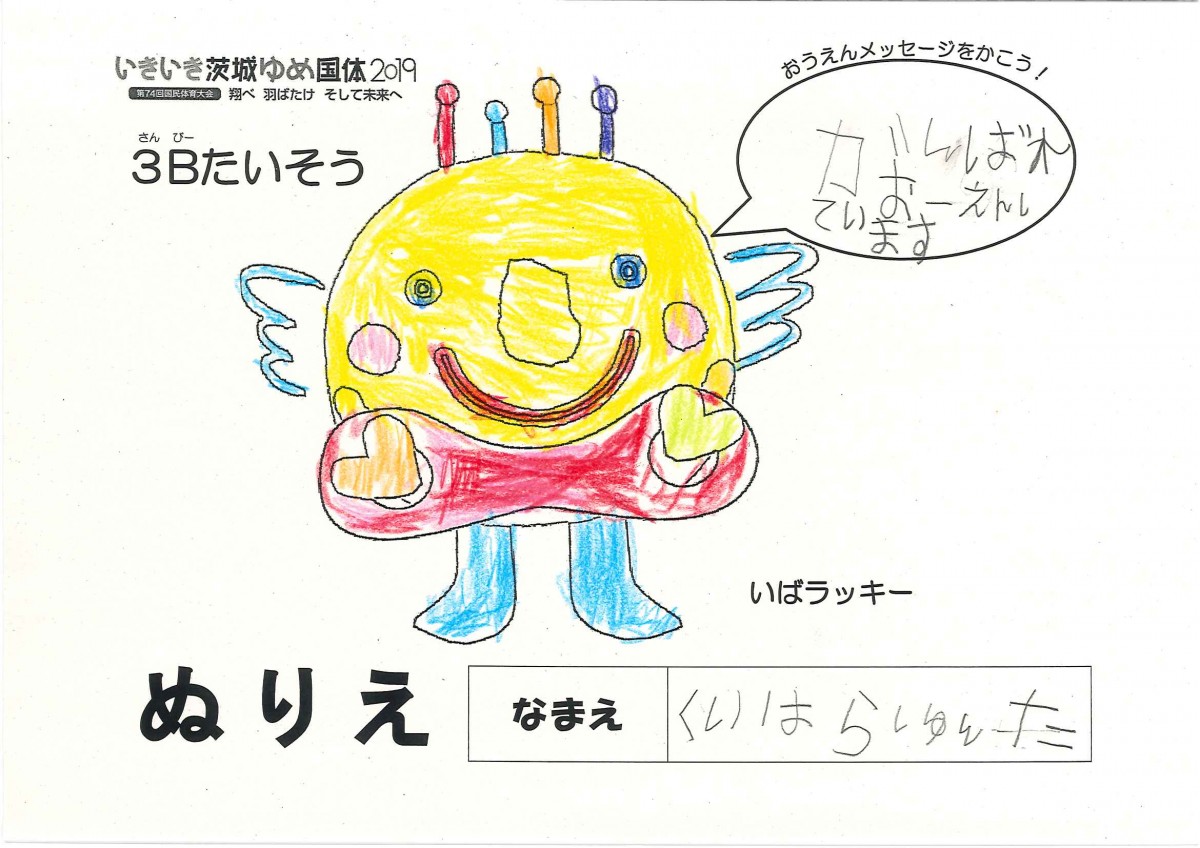 いきいき茨城ゆめ国体2019
第74回国民体育大会 翔べ 羽ばたけ そして未来へ
さん びー
3Bたいそう
おうえんメッセージをかこう!
がんばれ
おーえんし
ています
いばラッキー
ぬりえ
なまえ くりはらしゅんた